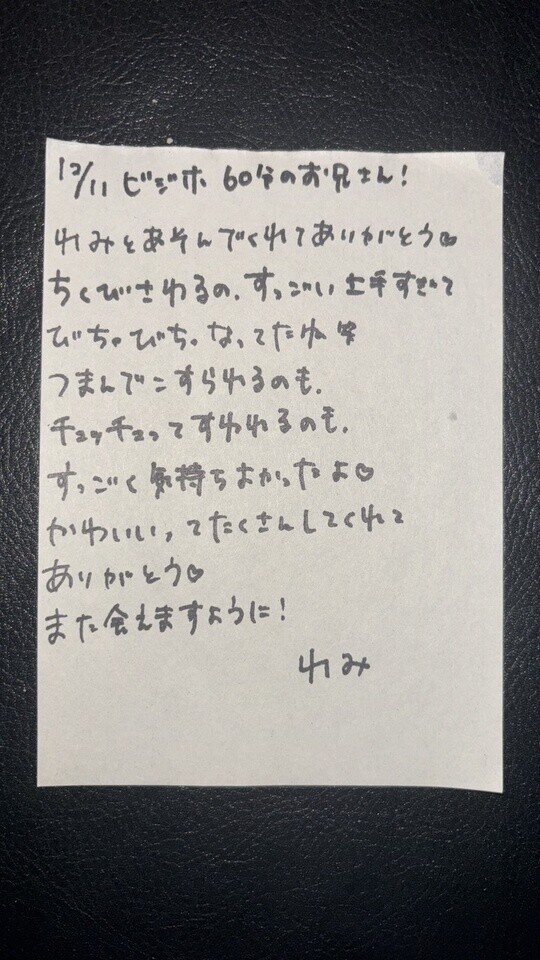 12/11 ビジホ 60分のお兄さん!
れみとあそんでくれてありがとう♡
ちくびさわるの、すっごい上手すぎて
びちゃびちゃなってたね笑
つまんでこすられるのも、
チュッチュッてすわれるのも、
すっごく気持ちよかったよ♡
かわいいってたくさんしてくれて
ありがとう♡
また会えますように!
れみ